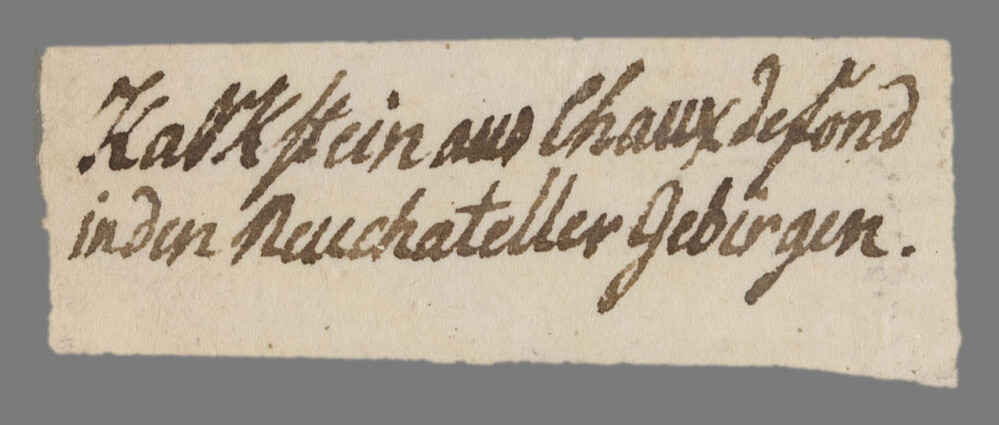 Kalkstein aus Chaux de fond
in den Neuchateller Gebirgen.